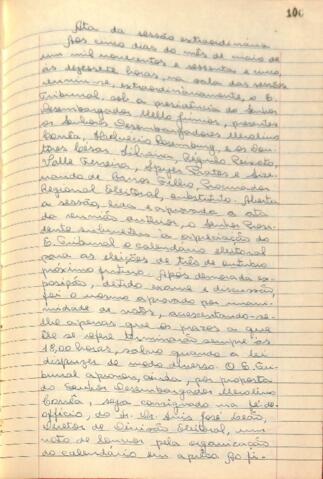 100
Ata da sessão extraordinária
Aos cinco dias do mês de maio de
um mil novecentos e sessenta e cinco,
às dezessete horas, na sala das sessões
reuniu-se, extraordinariamente, o E.
Tribunal, sob a presidência do Senhor
Desembargador Mello Júnior, presentes
os Senhores Desembargadores
Corrêa, e os Dou-
tores César Silveira, Peixoto,
Valle Ferreira, e
de Barros Filho, Procurador
Regional Eleitoral, substituto. Aberta
a sessão, lida e aprovada a ata
da reunião anterior, o Senhor Presi-
dente submeteu à apreciação do
E. Tribunal o calendário eleitoral
para as eleições de três de outubro
próximo futuro. Após demorada ex-
posição, detido exame e discussão,
foi o mesmo aprovado por unani-
midade de votos, acrescentando-se-
lhe apenas que os prazos a que
êle se refere terminarão sempre às
18,00 horas, salvo quando a lei
dispuser de modo diverso. O E. Tri-
bunal aprovou, ainda, por proposta
do Senhor Desembargador
Corrêa, seja consignado na fé de
ofício, do Dr. José Leão,
Diretor de Divisão Eleitoral, um
voto de louvor pela organização
do calendário em aprêço. Ao fi-